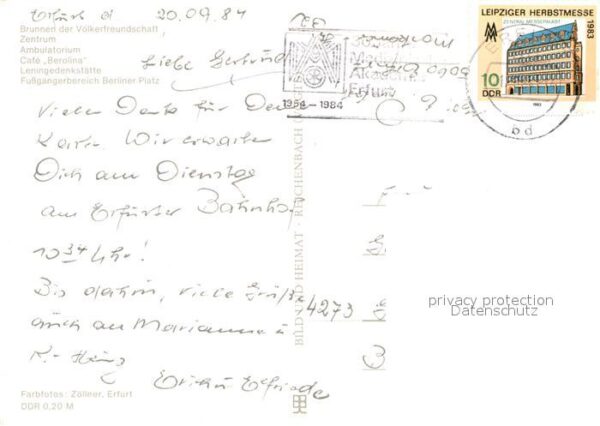 Erfurt d 20.09.84
Brunnen der Völkerfreundschaft
Zentrum
Ambulatorium
Café „Berolina"
LeninGedenkstätte
Fußgängerbereich Berliner Platz
Liebe Gertrud
Vielen Dank für Deine
Karte. Wir erwarten
Dich am Dienstag
am Erfurter Bahnhof
10 34 Uhr!
Bis dahin, viele Grüße
auch an Marianne u
K.-Heinz
Erich u Elfriede
Farbfotos: Zöllner, Erfurt
DDR 0,20 M
BILD UND HEIMAT · REICHENBACH
1954–1984
Erfurt
LEIPZIGER HERBSTMESSE
1983
ZENTRALMESSEPALAST
10
DDR
1983
bd
4273
privacy protection
Datenschutz